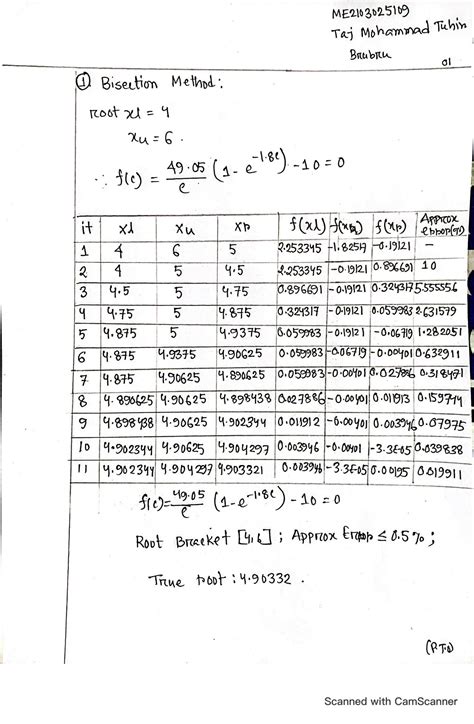 ME2103025109
Taj Mohammad Tuhin
01
① Bisection Method:
root xl = 4
xu = 6.
∴ f(c) = 49.05/c (1 - e^-1.8c) - 10 = 0
it xl xu xr f(xl) f(xu) f(xr) Approx error(%)
1 4 6 5 2.253345 -1.8257 -0.19121 —
2 4 5 4.5 2.253345 -0.19121 0.896691 10
3 4.5 5 4.75 0.896691 -0.19121 0.324317 5.555556
4 4.75 5 4.875 0.324317 -0.19121 0.059983 2.631579
5 4.875 5 4.9375 0.059983 -0.19121 -0.06719 1.282051
6 4.875 4.9375 4.90625 0.059983 -0.06719 -0.00401 0.632911
7 4.875 4.90625 4.890625 0.059983 -0.00401 0.027886 0.318471
8 4.890625 4.90625 4.898438 0.027886 -0.00401 0.011913 0.159744
9 4.898438 4.90625 4.902344 0.011912 -0.00401 0.003946 0.07975
10 4.902344 4.90625 4.904297 0.003946 -0.00401 -3.3E-05 0.039838
11 4.902344 4.904297 4.903321 0.003946 -3.3E-05 0.00195 0.019911
f(c)= 49.05/c (1-e^-1.8c) - 10 = 0
Root Bracket [4,6] ; Approx Error ≤ 0.5% ;
True root : 4.90332 .
(P.T.O)
Scanned with CamScanner